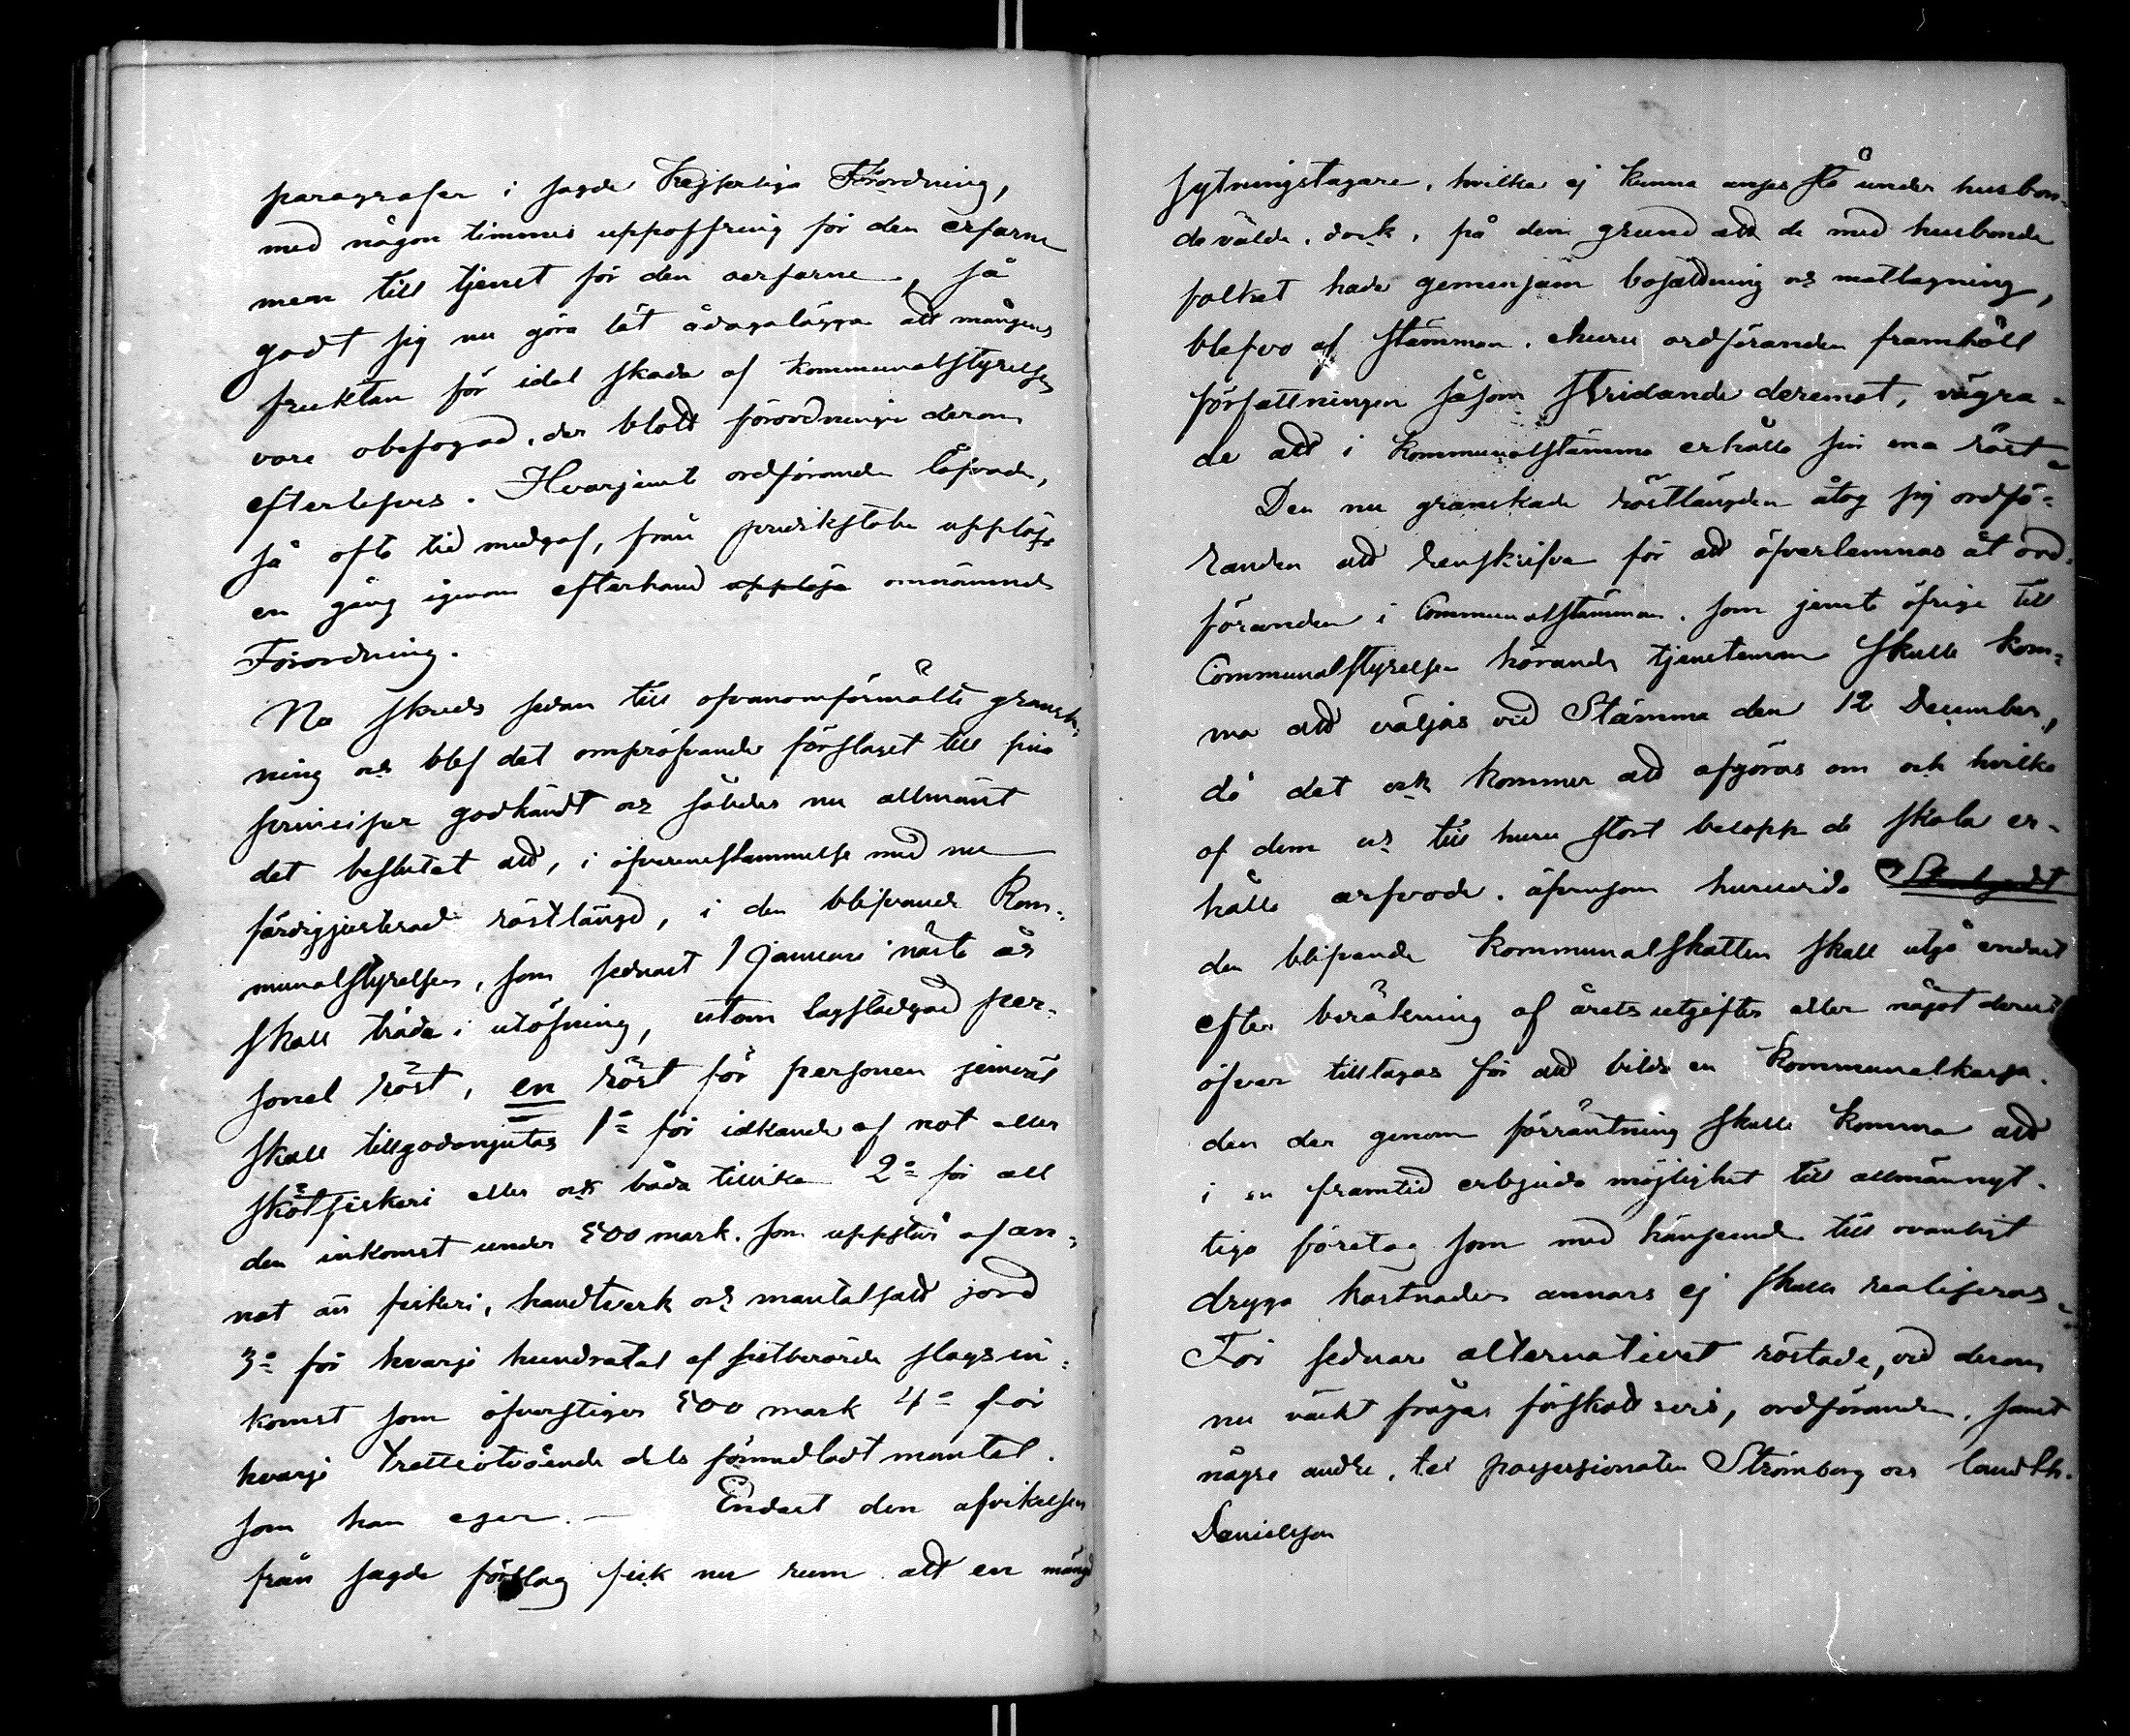 paragrafer i sagde Kejserliga Förordning,
med någon timmes uppoffring för den erfarne
men till tjenst för den oerfarne, så
godt sig nu göra lät ådagalägga att mångens
fruktan för idel skada af kommunalstyrelsen
vore obefogad, der blott förordningen derom
efterlefves. Hvarjemt ordföranden lofvade,
så ofta tid medgaf, från predikstolen uppläsa
en gång igenom efterhand uppläsa omnämnde
Förordning.
Nu skreds sedan till ofvanomförmälte gransk-
ning och blef det ompröfvande förslaget till sina
principer godkändt och således nu allmänt
det beslutet att, i öfverensstämmelse med nu
färdigjusterad röstlängd, i den blifvande Kom-
munalstyrelsen, som sednast 1 januari näste år
skall träda i utöfning, utom lagstadgad per-
sonel röst, en röst för personen jemväl
skall tillgodonjutas 1º för idkande af not eller
skötfiskeri eller och båda tillika 2º för all
den inkomst under 500 mark. som uppstår af an-
nat än fiskeri, handtverk och mantalsatt jord
3º för hvarje hundratal af sistberörde slags in-
komst som öfverstiger 500 mark 4º för
hvarje trettiotvående dels förmedladt mantal.
som han eger. — Endast den afvikelsen
från sagde förslag fick nu rum att en mängd
sytningstagare, hvilka ej kunna anses stå under husbon-
devälde, dock, på den grund att de med husbonde
folket hade gemensam bosättning och matlagning,
blefvo af stämman, ehuru ordföranden framhöll
författningen såsom stridande deremot, vägra-
de att i kommunalstämma erhålla sin ena röst
Den nu granskade röstlängden åtog sig ordfö-
randen att renskrifva för att öfverlemnas åt ord-
föranden i Communalstämman, som jemte öfrige till
Communalstyrelsen hörande tjenstemän skulle kom-
ma att väljas vid Stämma den 12 December,
då det och kommer att afgöras om och hvilka
af dem och till huru stort belopp de skola er-
hålla arfvode, äfvensom huruvida
den blifvande kommunalskatten skall utgå endast
efter beräkning af årets utgifter eller något derut
öfver tilltagas för att bilda en Kommunalkassa.
den der genom förräntning skulle komma att
i en framtid erbjuda möjlighet till allmännyt-
tiga företag som med hänseende till ovanligt
dryga kostnader annars ej skulle realiseras.
För sednare alternativet röstade, vid derom
nu väckt frågas förskottsvis, ordföranden, samt
någre andre, t ex possessionaten Strömborg och landth.
Danielsson